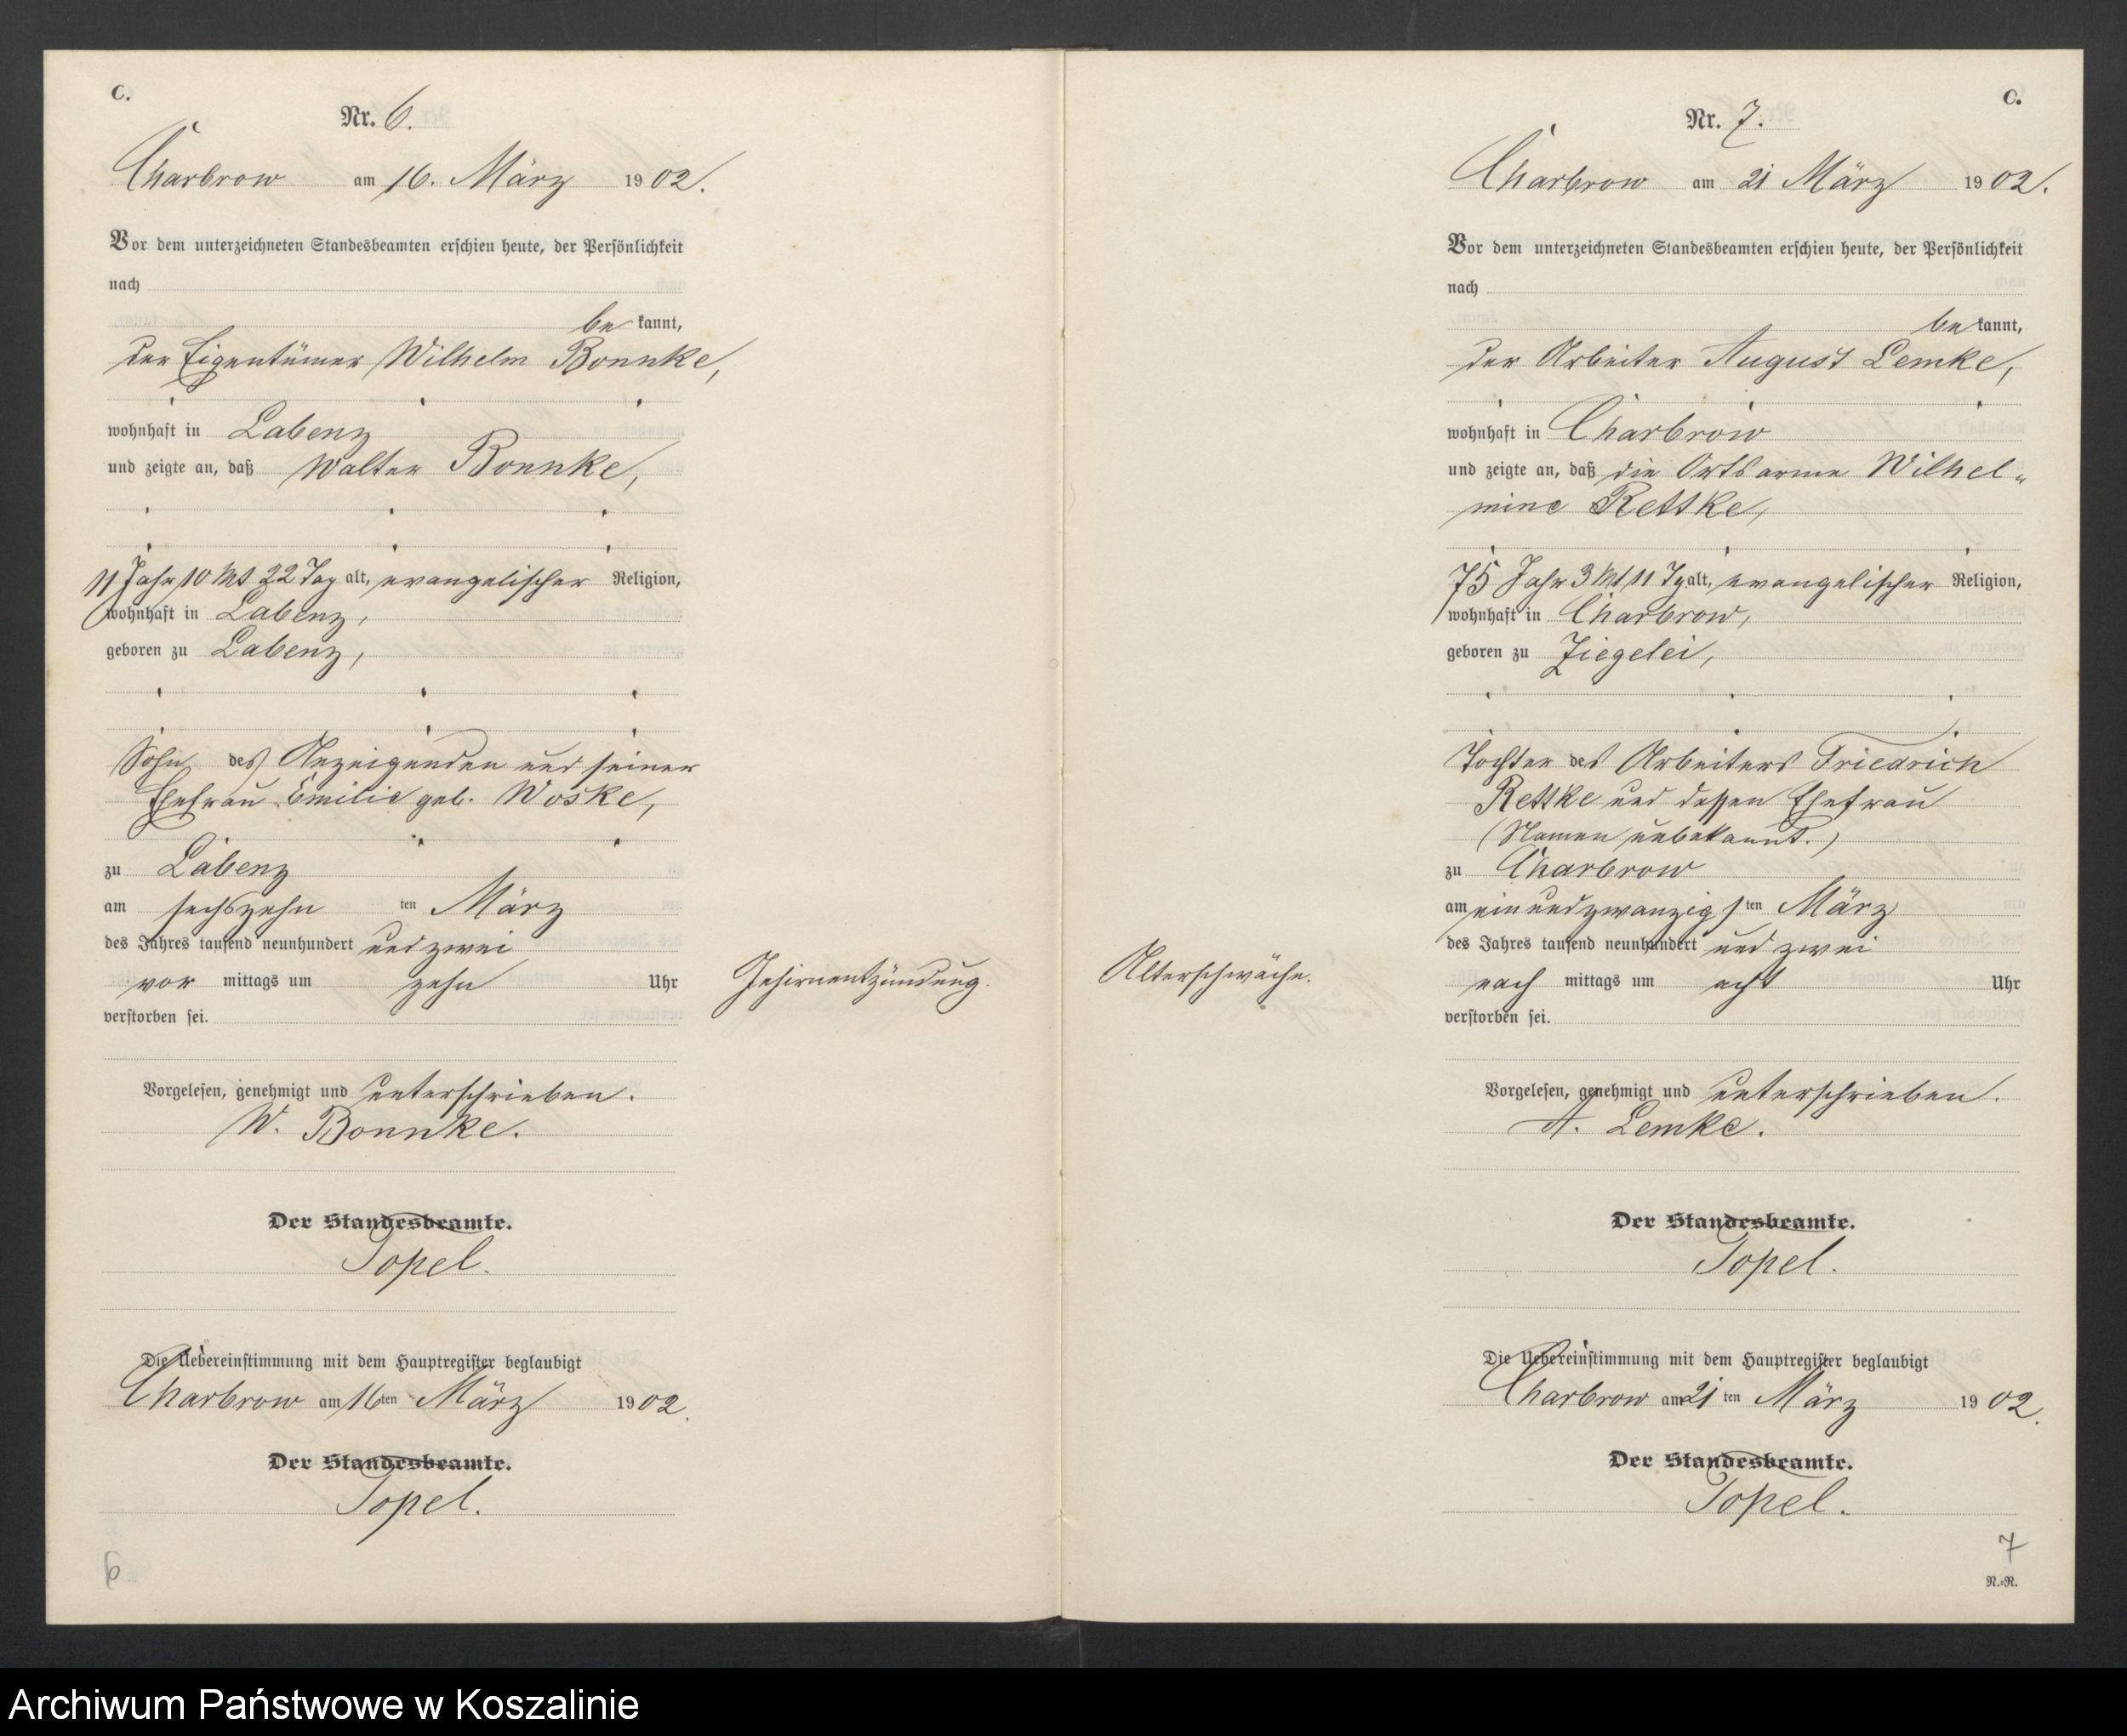 C.
Nr. 6.
Charbrow am 16. März 1902.
Vor dem unterzeichneten Standesbeamten erschien heute, der Persönlichkeit
nach
be kannt,
der Eigentümer Wilhelm Bonnke,
wohnhaft in Labenz
und zeigte an, daß Walter Bonnke,
11 Jahr 10 Mt 22 Tag alt, evangelischer Religion,
wohnhaft in Labenz,
geboren zu Labenz,
Sohn des Anzeigenden und seiner
Ehefrau Emilie geb. Woske,
zu Labenz
am sechszehn ten März
des Jahres tausend neunhundert und zwei
vor mittags um zehn Uhr
verstorben sei.
Gehirnentzündung.
Vorgelesen, genehmigt und unterschrieben.
W. Bonnke.
Der Standesbeamte.
Topel.
Die Uebereinstimmung mit dem Hauptregister beglaubigt
Charbrow am 16ten März 1902.
Der Standesbeamte.
Topel.
6
C.
Nr. 7.
Charbrow am 21 März 1902.
Vor dem unterzeichneten Standesbeamten erschien heute, der Persönlichkeit
nach
be kannt,
der Arbeiter August Lemke,
wohnhaft in Charbrow
und zeigte an, daß die Ortsarme Wilhel-
mine Rettke,
75 Jahr 3 Mt 11 Tg alt, evangelischer Religion,
wohnhaft in Charbrow,
geboren zu Ziegelei,
Tochter des Arbeiters Friedrich
Rettke und dessen Ehefrau
(Namen unbekannt.)
zu Charbrow
am einundzwanzigs ten März
des Jahres tausend neunhundert und zwei
nach mittags um acht Uhr
verstorben sei.
Altersschwäche.
Vorgelesen, genehmigt und unterschrieben.
A. Lemke.
Der Standesbeamte.
Topel.
Die Uebereinstimmung mit dem Hauptregister beglaubigt
Charbrow am 21 ten März 1902.
Der Standesbeamte.
Topel.
7
N.=R.
Archiwum Państwowe w Koszalinie